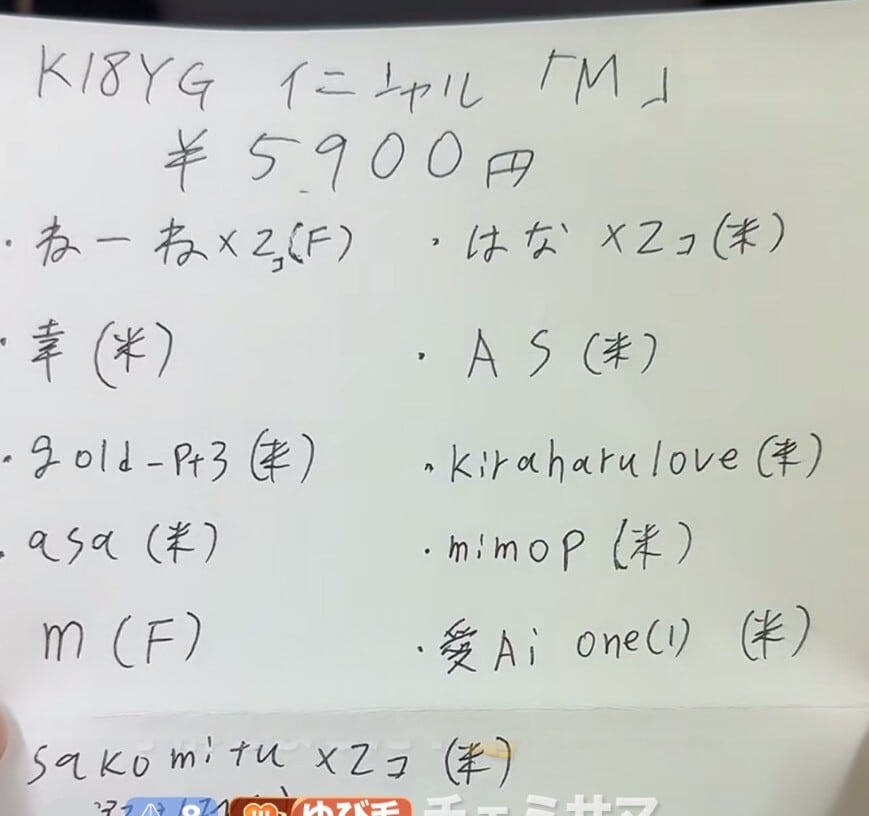 K18YG イニシャル 「M」
¥5,900円
・ねーね×2コ(F) ・はな ×2コ(米)
・幸(米) ・AS(米)
・gold-pt3(米) ・kiraharulove(米)
・asa(米) ・mimop(米)
m(F) ・愛Ai one(1) (米)
sakomitu ×2コ(米)
8 ゆび毛 チェミサマ